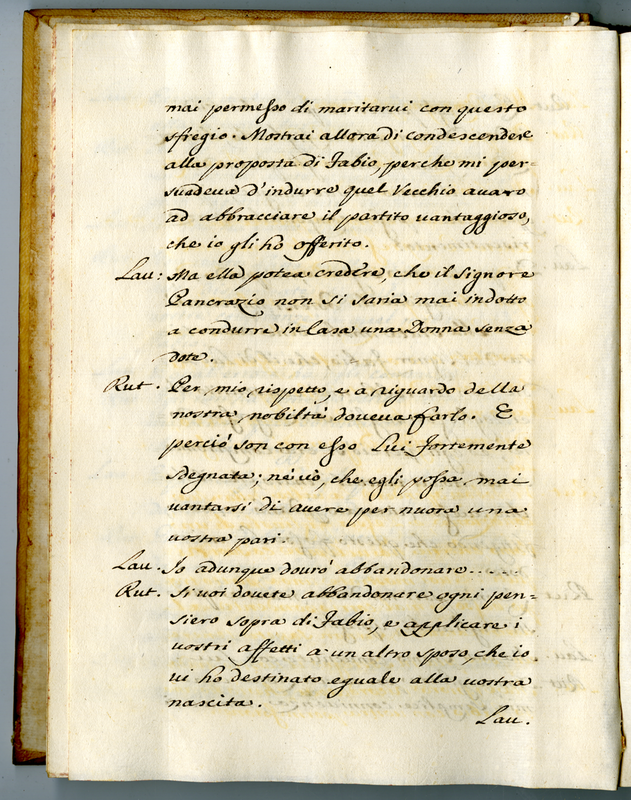 mai permesso di maritarui con questo
sfregio. Mostrai allora di condescendere
alla proposta di Fabio, perche mi per=
suadeua d'indurre quel Vecchio auaro
ad abbracciare il partito uantaggioso,
che io gli hò offerito.
Lau: Ma ella potea credere, che il Signore
Pancrazio non si saria mai indotto
a condurre in Casa una Donna senza
dote.
Rut. Per mio rispetto, e a riguardo della
nostra nobiltà doueua farlo. E
perciò son con esso Lui fortemente
sdegnata; nè uò, che egli possa mai
uantarsi di auere per nuora una
uostra pari.
Lau. Io adunque dourò abbandonare....
Rut. Si uoi douete abbandonare ogni pen=
siero sopra di Fabio, e applicare i
uostri affetti a un altro sposo, che io
ui ho destinato eguale alla uostra
nascita.
Lau.